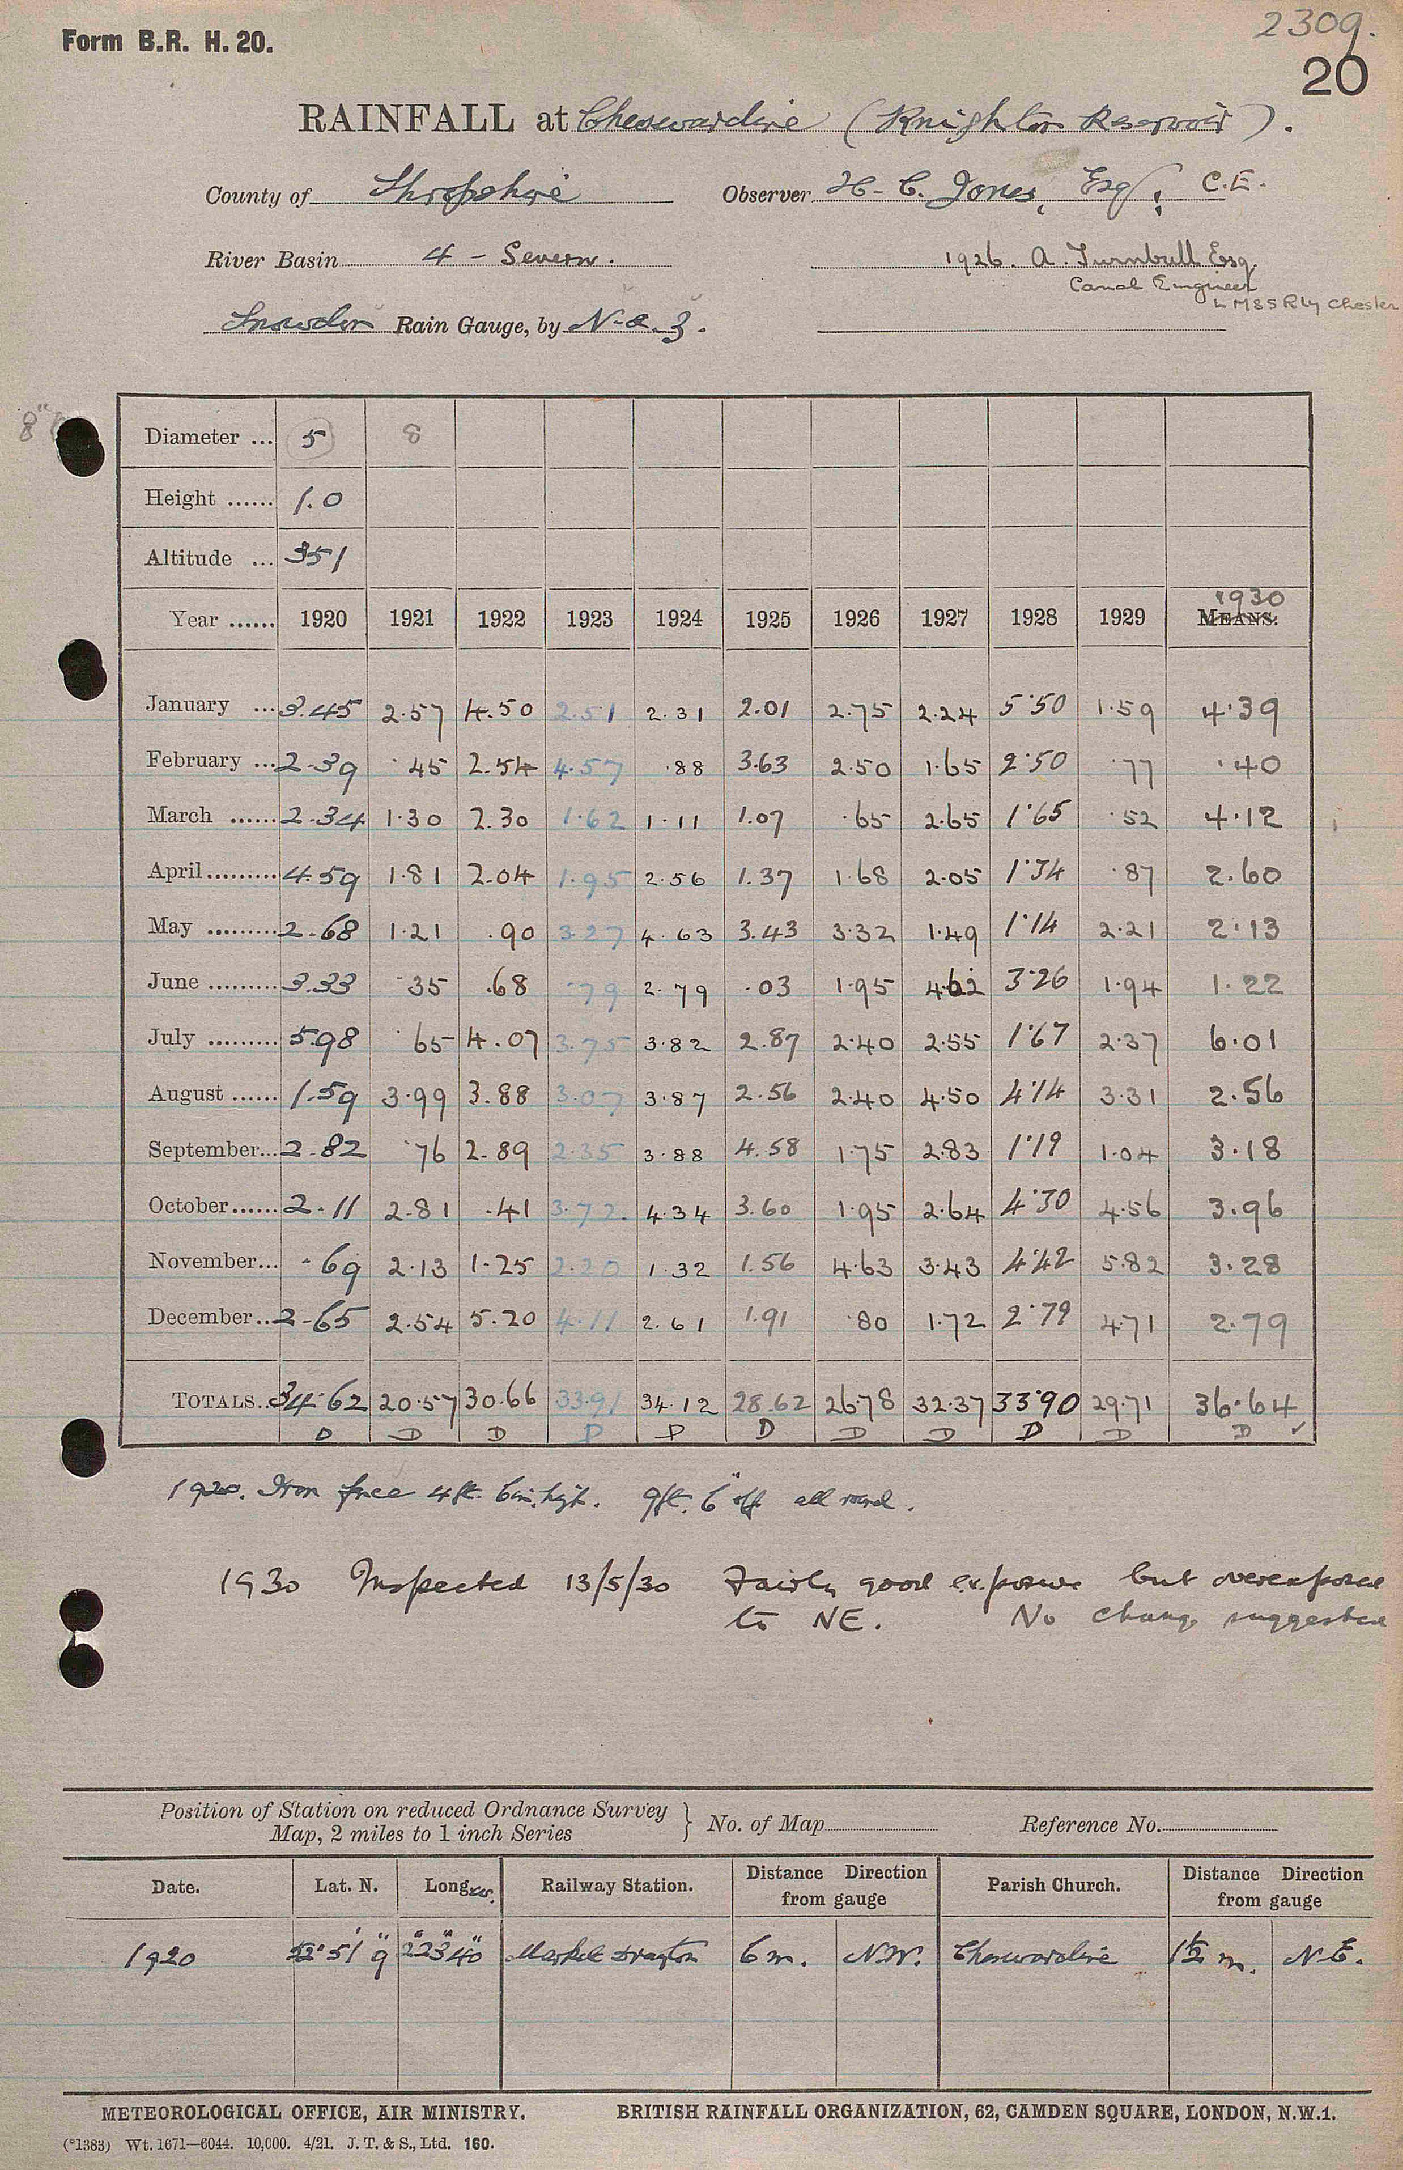 2309.
Form B.R. H. 20.
20
RAINFALL at Cheswardine (Knighton Reservoir).
County of Shropshire Observer H. C. Jones, Esq., C.E.
River Basin 4 - Severn. 1926. A. Turnbull Esq.
Canal Engineer
L M & S Rly Chester
Snowdon Rain Gauge, by N. & Z.
8"
Diameter ... 5 8
Height ...... 1.0
Altitude ... 351
1930
Year ...... 1920 1921 1922 1923 1924 1925 1926 1927 1928 1929 MEANS.
January ... 3.45 2.57 4.50 2.51 2.31 2.01 2.75 2.24 5.50 1.59 4.39
February ... 2.39 .45 2.54 4.57 .88 3.63 2.50 1.65 2.50 .77 .40
March ...... 2.34 1.30 2.30 1.62 1.11 1.07 .65 2.65 1.65 .52 4.12
April ......... 4.59 1.81 2.04 1.95 2.56 1.37 1.68 2.05 1.34 .87 2.60
May ......... 2.68 1.21 .90 3.27 4.63 3.43 3.32 1.49 1.14 2.21 2.13
June ......... 3.33 .35 .68 .79 2.79 .03 1.95 4.62 3.26 1.94 1.22
July ......... 5.98 .65 4.07 3.75 3.82 2.87 2.40 2.55 1.67 2.37 6.01
August ...... 1.59 3.99 3.88 3.07 3.87 2.56 2.40 4.50 4.14 3.31 2.56
September... 2.82 .76 2.89 2.35 3.88 4.58 1.75 2.83 1.19 1.04 3.18
October ...... 2.11 2.81 .41 3.72 4.34 3.60 1.95 2.64 4.30 4.56 3.96
November... .69 2.13 1.25 2.20 1.32 1.56 4.63 3.43 4.42 5.82 3.28
December... 2.65 2.54 5.20 4.11 2.61 1.91 .80 1.72 2.79 4.71 2.79
TOTALS.. 34.62 20.57 30.66 33.91 34.12 28.62 26.78 32.37 33.90 29.71 36.64
D D D D D D D D D D D ✓
1920. Iron fence 4ft. 6in. high. 9ft. 6" off all round.
1930 Inspected 13/5/30 Fairly good exposure but overexposed
to NE. No change suggested
Position of Station on reduced Ordnance Survey
Map, 2 miles to 1 inch Series } No. of Map Reference No.
Date. Lat. N. Long. W. Railway Station. Distance Direction from gauge Parish Church. Distance Direction from gauge
1920 52° 51' 9" 2° 23' 40" Market Drayton 6 m. N.W. Cheswardine 1½ m. N.E.
METEOROLOGICAL OFFICE, AIR MINISTRY. BRITISH RAINFALL ORGANIZATION, 62, CAMDEN SQUARE, LONDON, N.W.1.
(*1383) Wt. 1671—6044. 10,000. 4/21. J. T. & S., Ltd. 160.